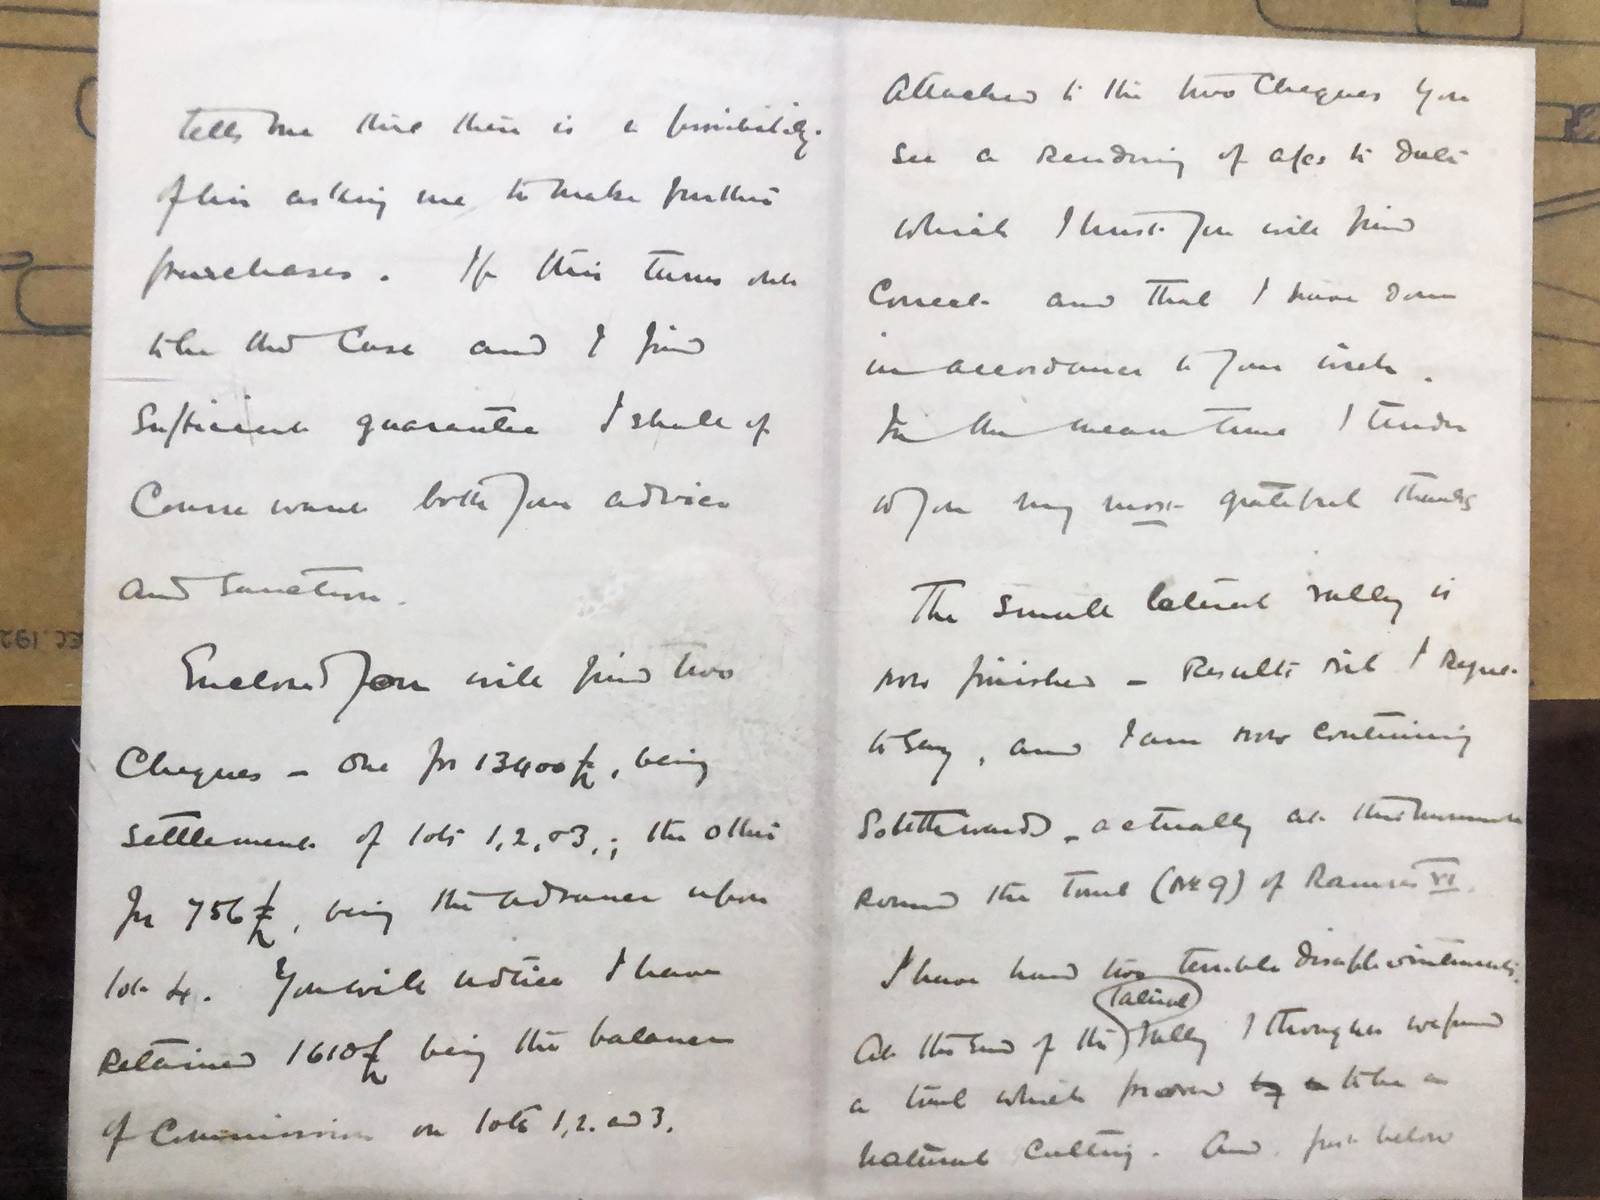 tells me that there is a possibility
of his asking me to make further
purchases. If this turns out
to be the Case and I find
Sufficient guarantee I shall of
Course want both your advice
and Sanction.
Enclosed you will find two
Cheques – One for 13400 £, being
Settlement of lots 1, 2, & 3,; the other
for 756 £, being the advance upon
lot 4. You will notice I have
Retained 1610 £ being the balance
of Commission on lots 1, 2. and 3.
Attached to the two Cheques you
see a Rendering of a/cs to date
which I trust you will find
Correct and that I have done
in accordance to your wish.
In the mean time I tender
to you my most grateful thanks
The Small lateral valley is
now finished – Results nil I regret
to say, and I am now continuing
Southwards – actually at
Round the tomb (No 9) of Ramses VI.
I have had two terrible disappointments.
lateral
At the End of the valley I thought we found
a tomb which proved to be a
natural Cutting. And just below